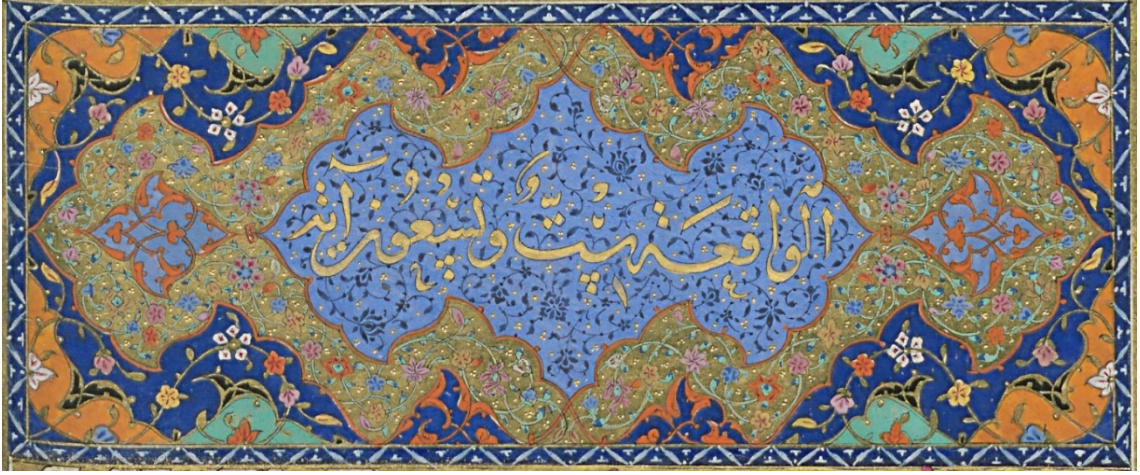 الواقعة ستّ وتسعون اية